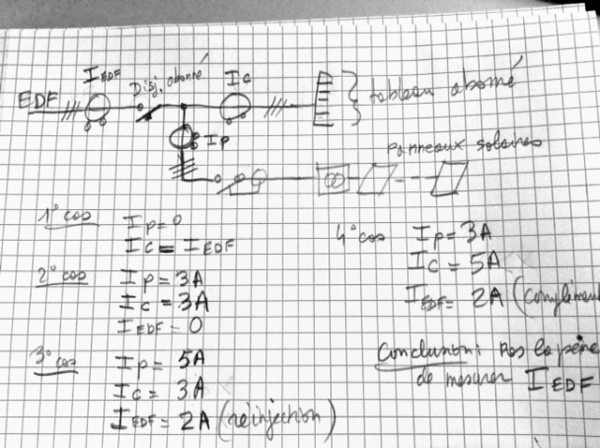 I EDF
Disj. abonné
Ic
EDF
tableau abonné
Ip
panneaux solaires
1° cas
Ip = 0
Ic = I EDF
2° cas
Ip = 3A
Ic = 3A
I EDF = 0
3° cas
Ip = 5A
Ic = 3A
I EDF = 2A (réinjection)
4° cas
Ip = 3A
Ic = 5A
I EDF = 2A (complément
Conclusion: Pas la peine
de mesurer I EDF